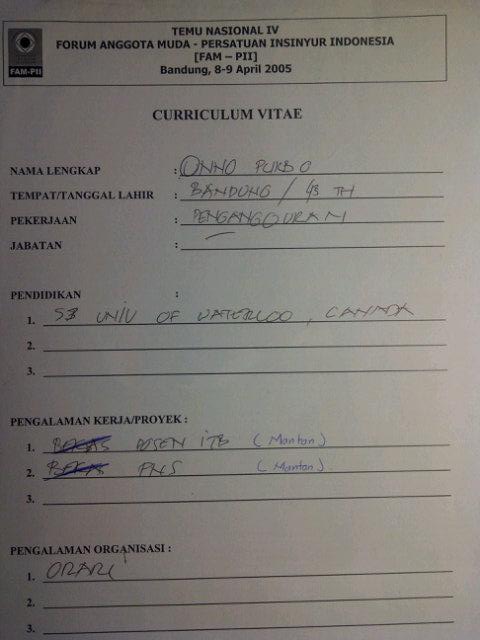 TEMU NASIONAL IV
FORUM ANGGOTA MUDA - PERSATUAN INSINYUR INDONESIA
[FAM – PII]
Bandung, 8-9 April 2005
FAM-PII
CURRICULUM VITAE
NAMA LENGKAP : ONNO PURBO
TEMPAT/TANGGAL LAHIR : BANDUNG / 43 TH
PEKERJAAN : PENGANGGURAN
JABATAN :
PENDIDIKAN :
1. S3 UNIV OF WATERLOO, CANADA
2.
3.
PENGALAMAN KERJA/PROYEK :
1. BEKAS DOSEN ITB (Mantan)
2. BEKAS PNS (Mantan)
3.
PENGALAMAN ORGANISASI :
1. ORARI
2.
3.